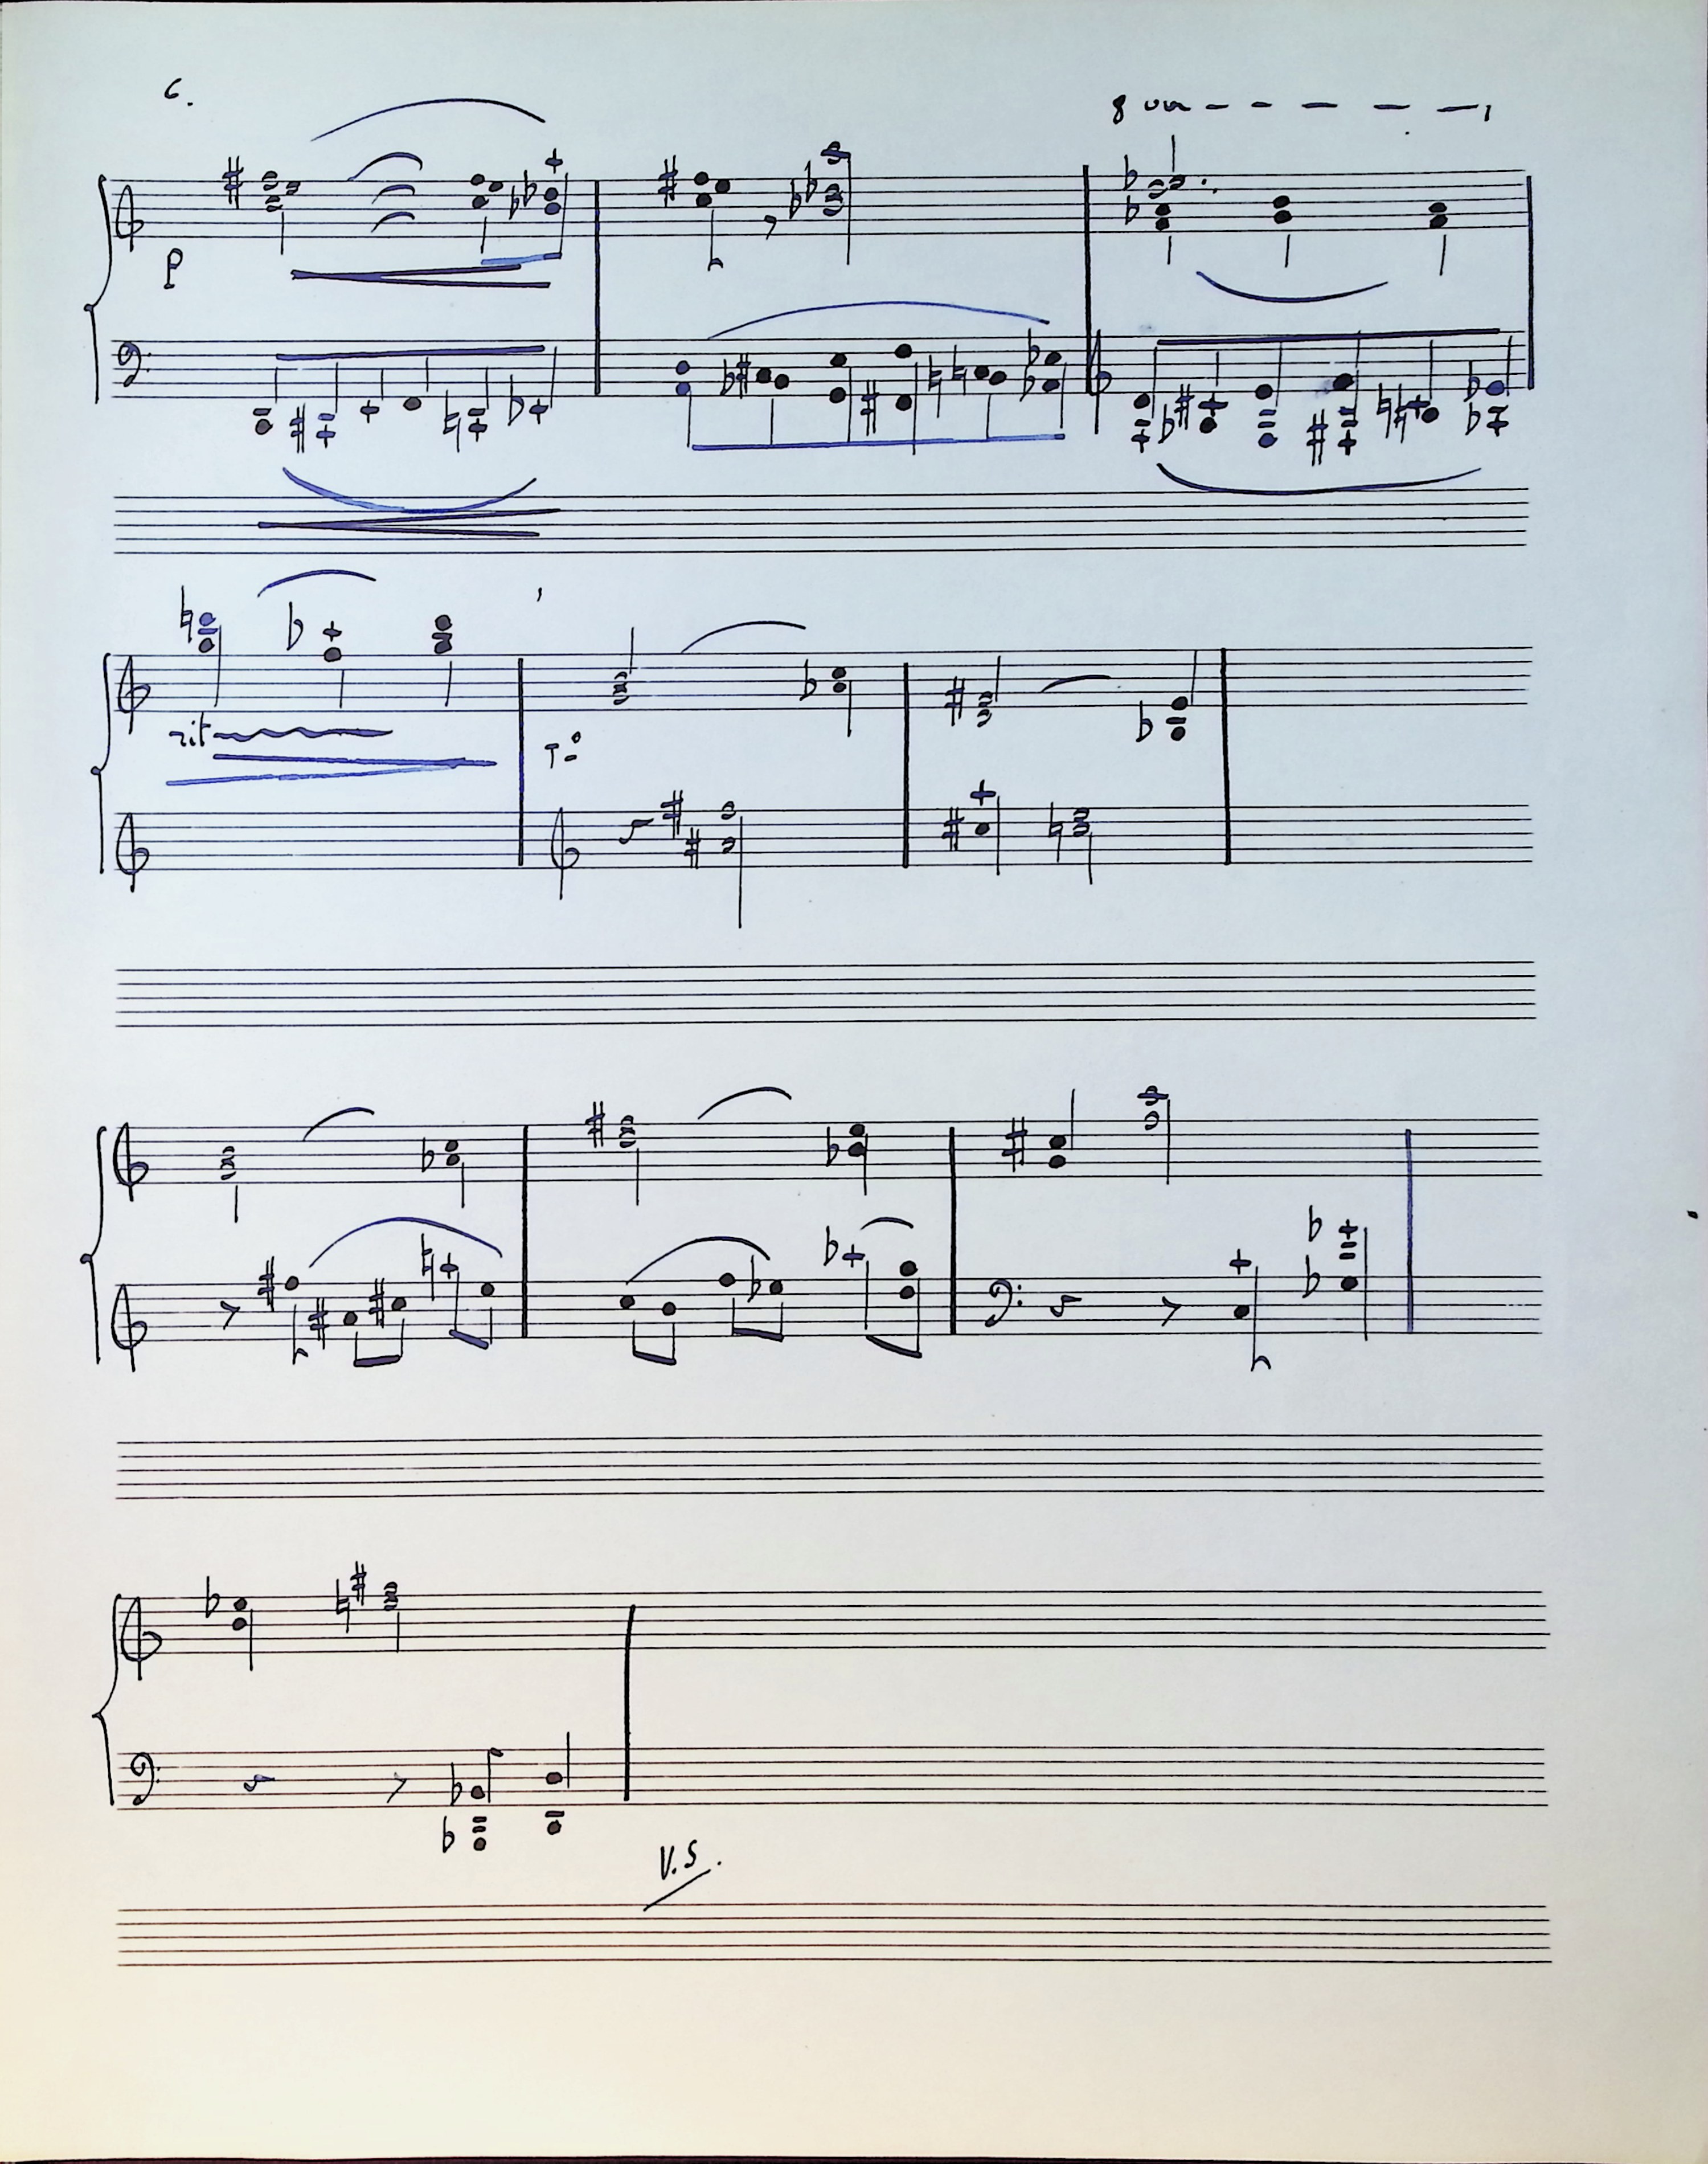 6.
8va
P
rit
T°
V.S.